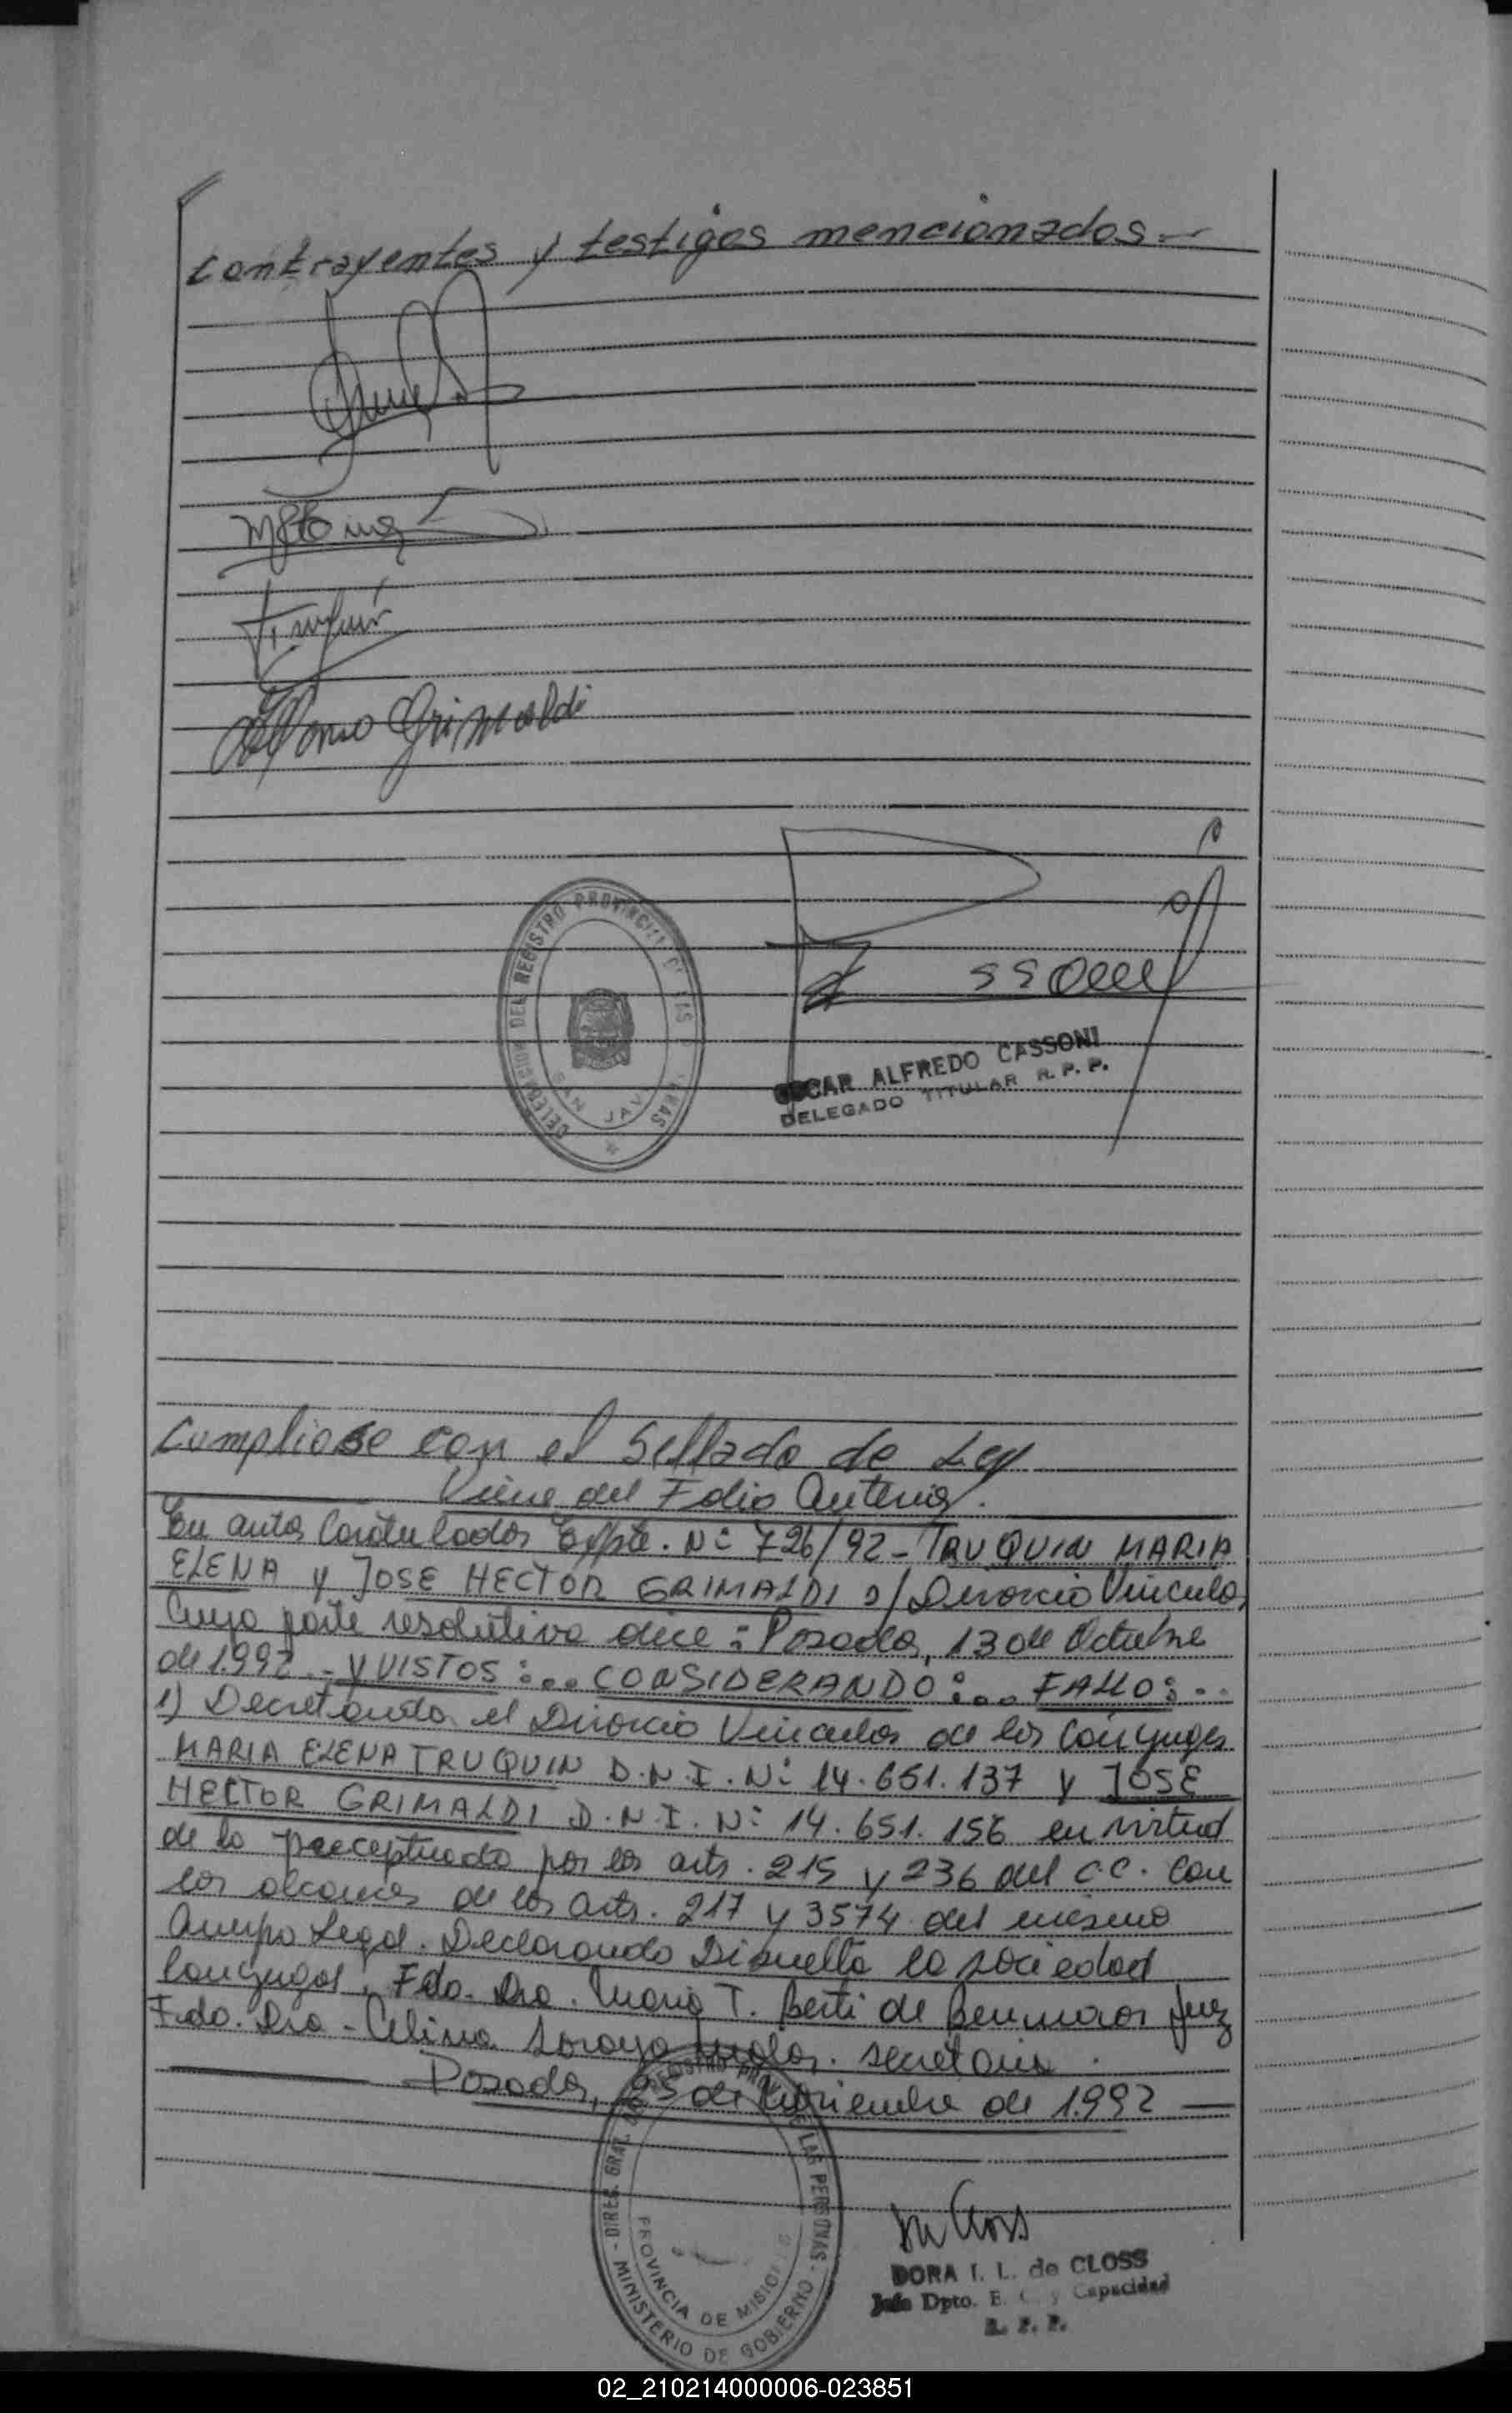 Contrayentes y testigos mencionados.—
Alfonso Grimaldi
DELEGACION DEL REGISTRO PROVINCIAL DE LAS PERSONAS
SAN JAV
SSOUU
OSCAR ALFREDO CASSONI
DELEGADO TITULAR R. P. P.
Cumpliose con el Sellado de Ley
Viene del Folio Anterior.
En autos Caratulados Expte. Nº 726/92 - TRUQUIN MARIA
ELENA y JOSE HECTOR GRIMALDI s/ Divorcio Vincular,
Cuya parte resolutiva dice: Posadas, 13 de Octubre
de 1.992.- Y VISTOS:... CONSIDERANDO:... FALLO:..
1) Decretando el Divorcio Vincular de los Cónyuges
MARIA ELENA TRUQUIN D.N.I. Nº 14.651.137 y JOSE
HECTOR GRIMALDI D.N.I. Nº 14.651.156 en virtud
de lo preceptuado por los arts. 215 y 236 del C.C. Con
los alcances de los arts. 217 y 3574 del mismo
Cuerpo Legal. Declarando Disuelta la sociedad
Conyugal. Fdo. Dra. Maria T. Berti de Benmaor Juez
Fdo. Dra. Celina Soraya. Secretaria.
Posadas, 25 de Noviembre de 1.992
DIREC. GRAL. DEL REGISTRO PROV. DE LAS PERSONAS - MINISTERIO DE GOBIERNO -
PROVINCIA DE MISIONES
DORA I. L. de CLOSS
Jefe Dpto. E. C. y Capacidad
R. P. P.
02_210214000006-023851